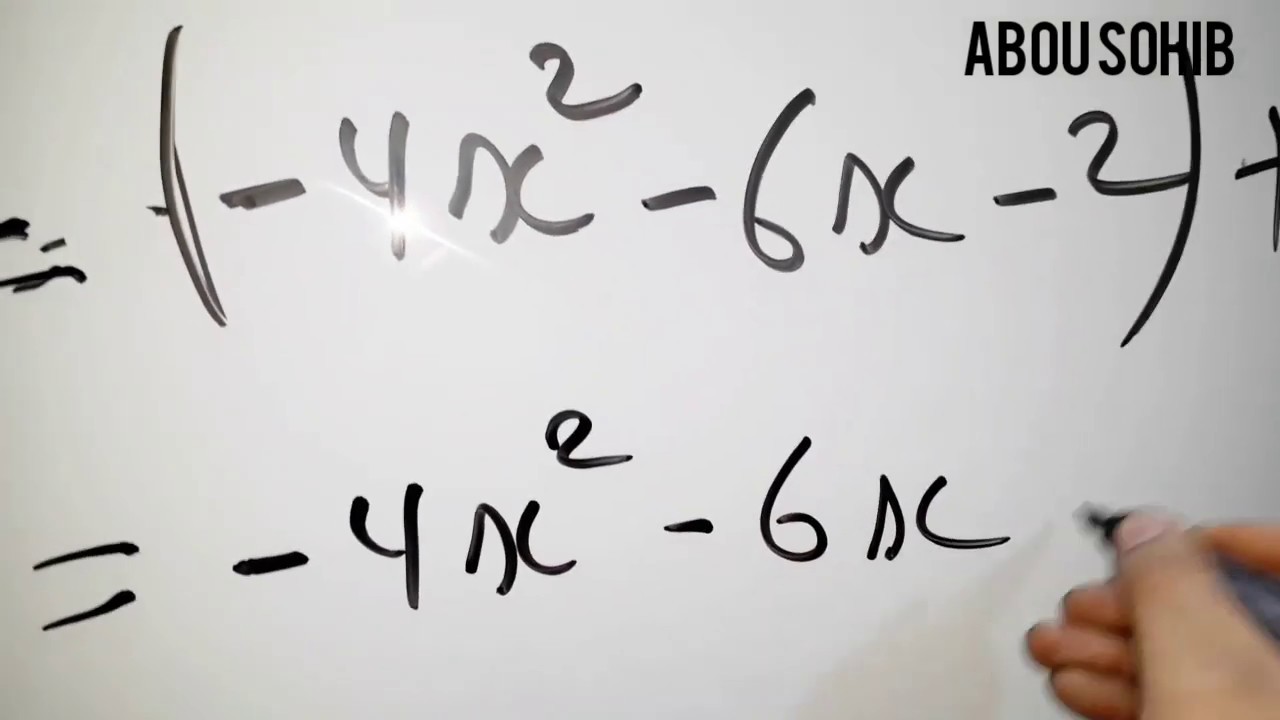 ABOU SOHIB
= (-4x² - 6x - 2) +
= -4x² - 6x